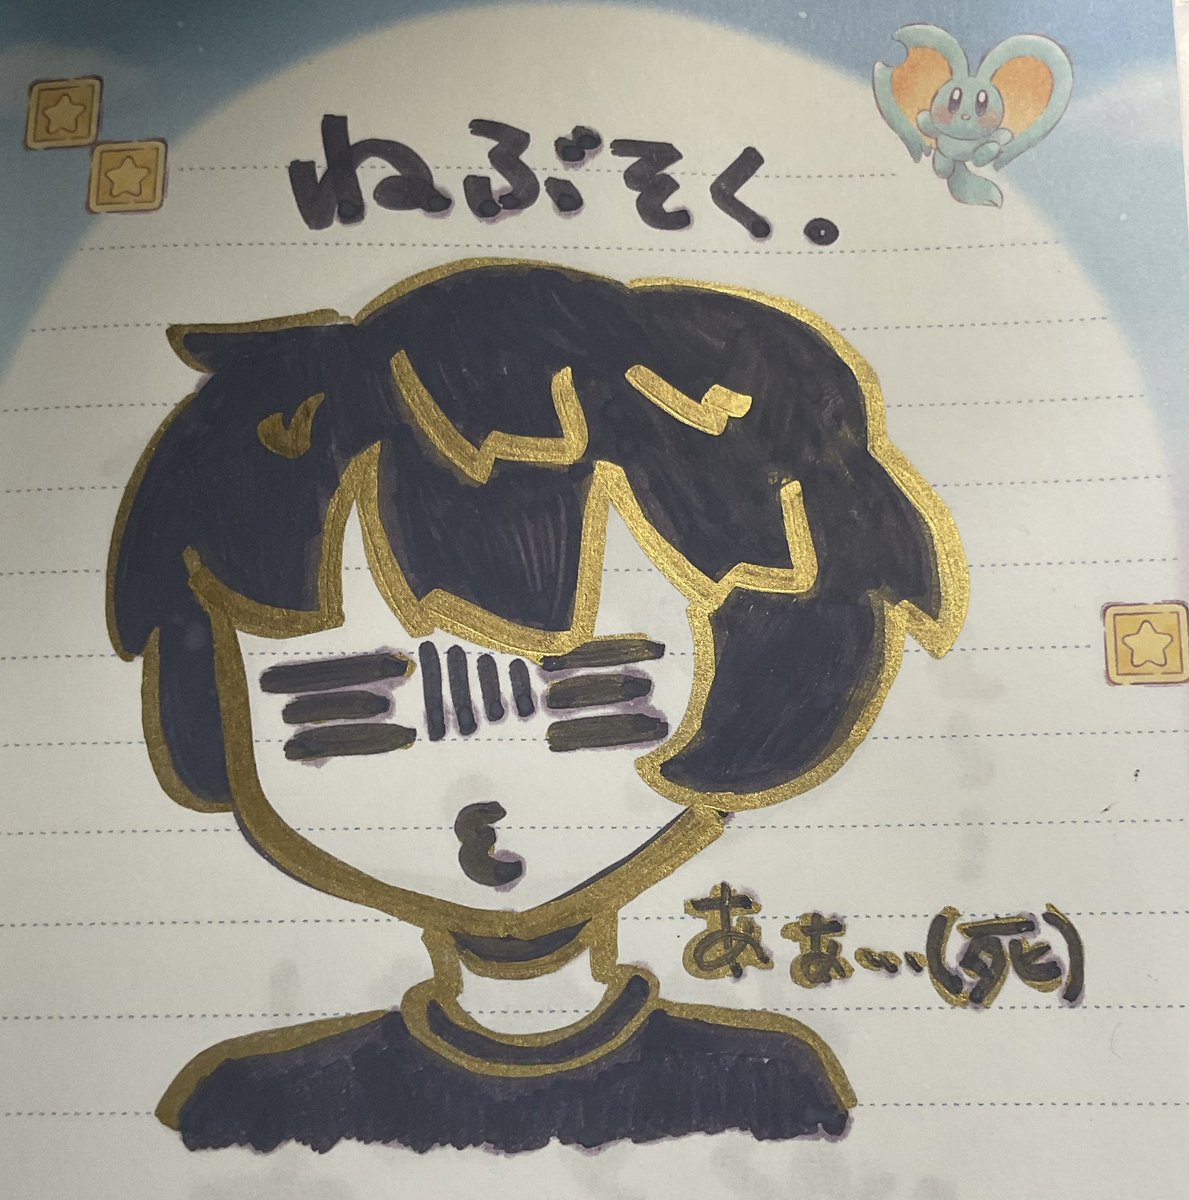 ねぶそく。
あぁ...(死)